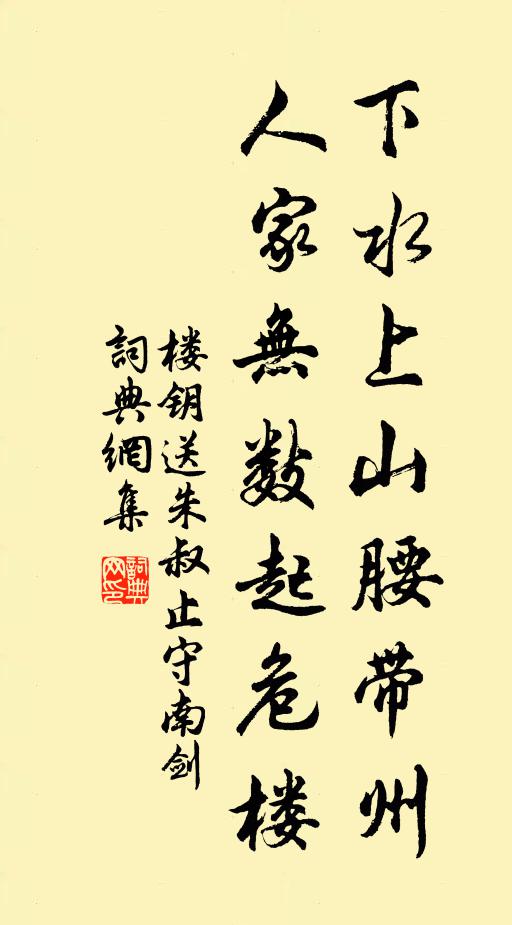 下水上山腰带州
人家無数起危楼
楼钥送朱叔止守南剑
詞典網集
詞典网印